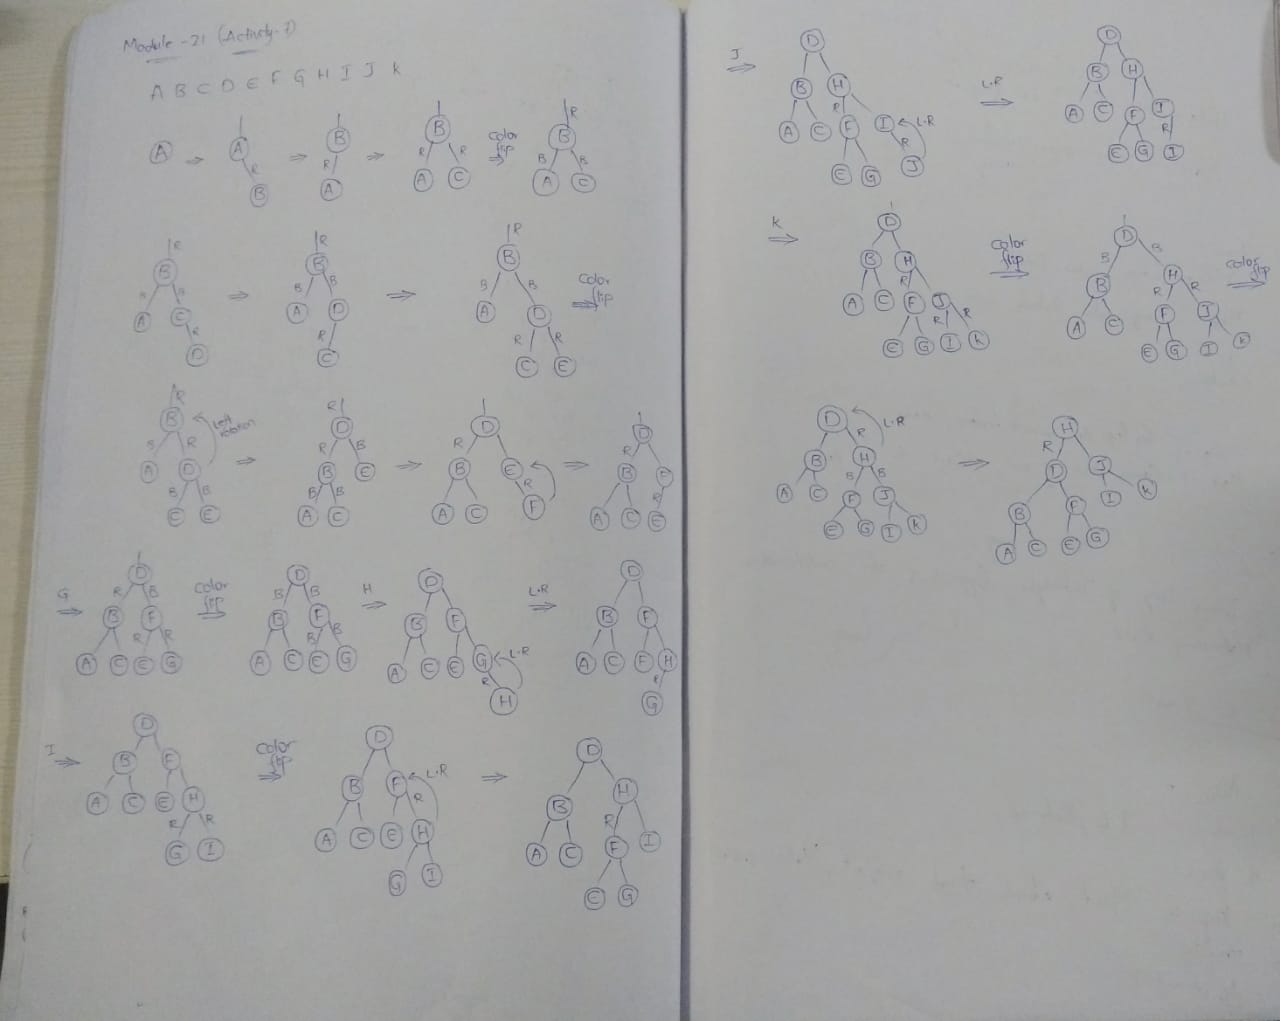 Module-21 (Activity-1)
A B C D E F G H I J K
A ⇒ A R B ⇒ B R A ⇒ B R R A C color flip ⇒ R B B B A C
R B B B A C R D ⇒ R B B B A D R C ⇒ R B B B A D R R C E color flip ⇒
R B B R A D B B C E Left rotation ⇒ R D R B B E B B A C ⇒ D R B E A C R F ⇒ D R B F A C R E
G ⇒ D R B B F R R A C E G color flip ⇒ D B B B F B B A C E G H ⇒ D B F A C E G L.R R H L.R ⇒ D B F A C F H R G
I ⇒ D B F A C E H R R G I color flip ⇒ D B F L.R R A C E H G I ⇒ D B H R A C F I E G
J ⇒ D B H R A C F I L.R R E G J L.R ⇒ D B H A C F J R E G I
K ⇒ D B H R A C F J R R E G I K color flip ⇒ D B B B H R R A C F J E G I K color flip ⇒
D L.R R B H B B A C F J E G I K ⇒ H R D J B F I K A C E G